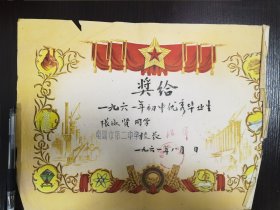 奖给
一九六一年初中优秀毕业生
张淑贤同学
市第二中学校长
一九六一年八月 日